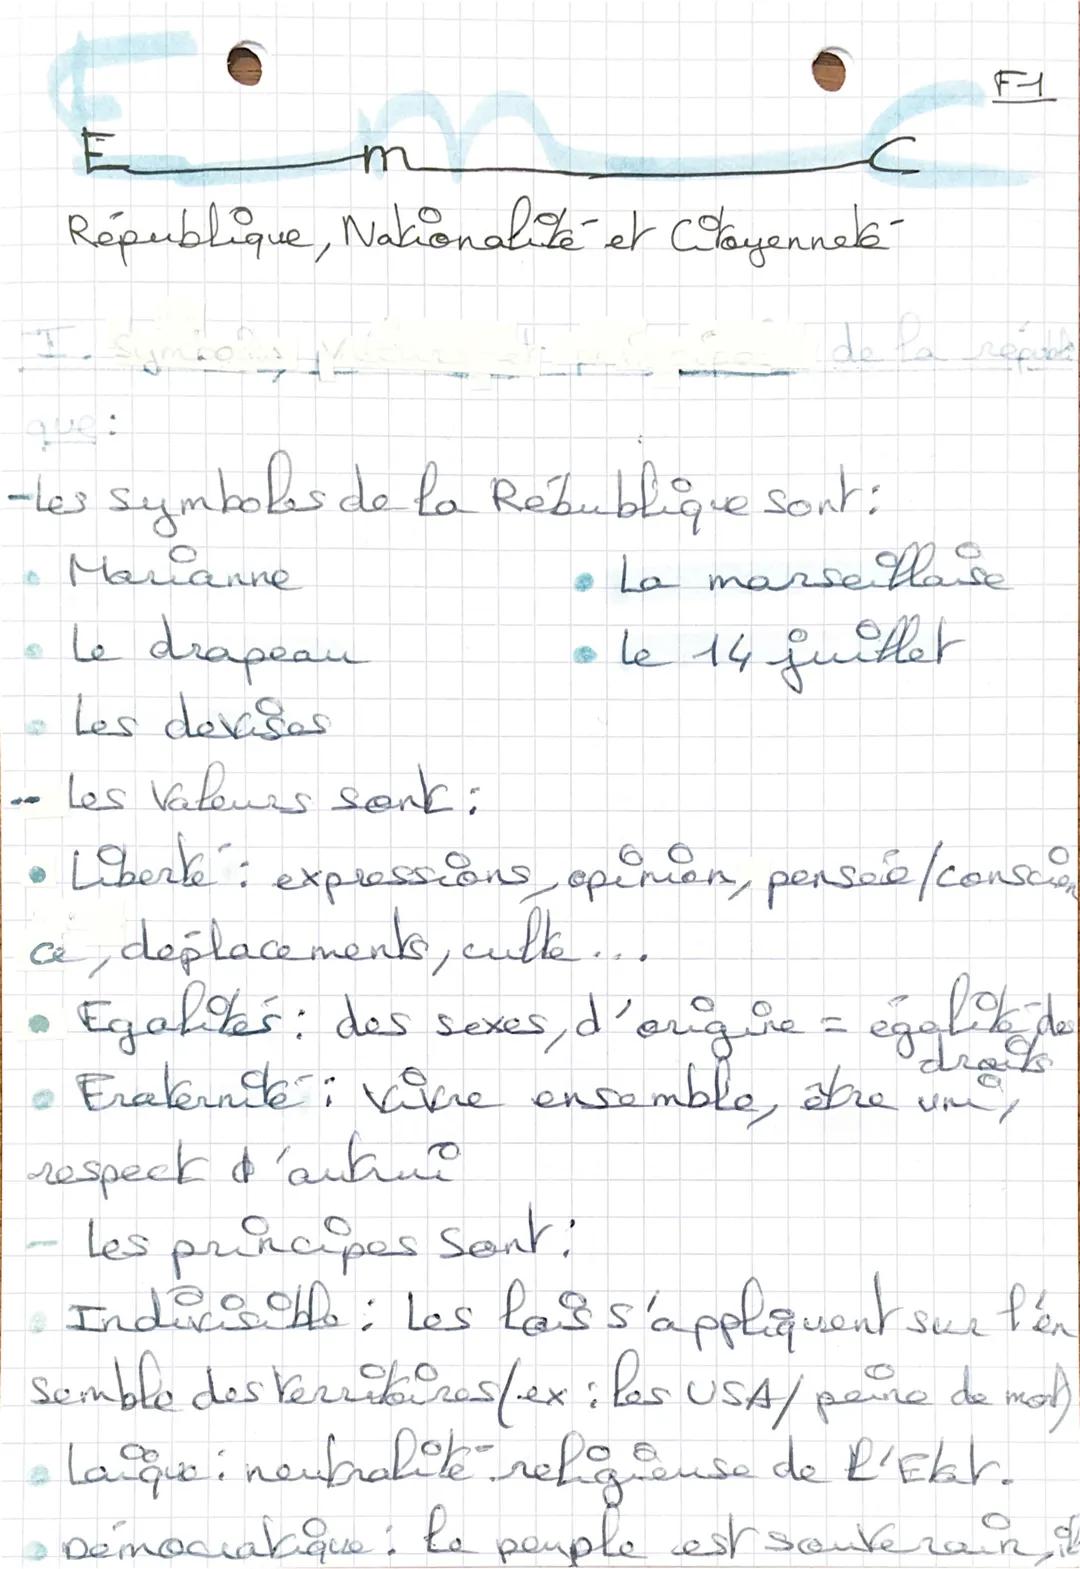 F-1
E m C
République, Nationalité et Citoyenneté
I. symboles, valeurs et principes de la républi
que :
- Les symboles de la Rébublique sont :
• Marianne • La marseillaise
• Le drapeau • Le 14 juillet
• Les devises
- Les Valeurs sont :
• Liberté : expressions, opinion, pensée/conscien
ce, déplacements, culte...
• Egalités : des sexes, d'origine = égalité de
droits
• Fraternité : vivre ensemble, être uni,
respect d'autrui
- Les principes sont :
• Indivisible : Les lois s'appliquent sur l'en
semble des territoires (ex : les USA/ peine de mort)
• Laïque : neutralité religieuse de l'Etat.
• Démocratique : le peuple est souverain, il